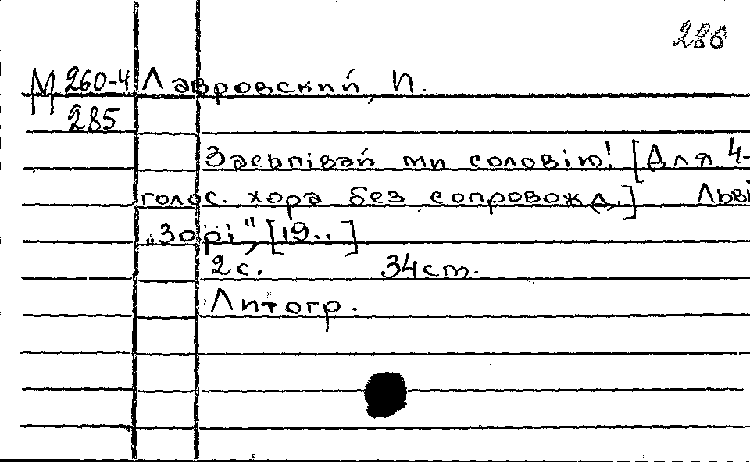 286
М 260-4 Лавровский, И.
285
Заспівай ми соловію! [Для 4-
голос. хора без сопровожд.] Льві
„Зорі", [19..]
2 с. 34 cm.
Литогр.